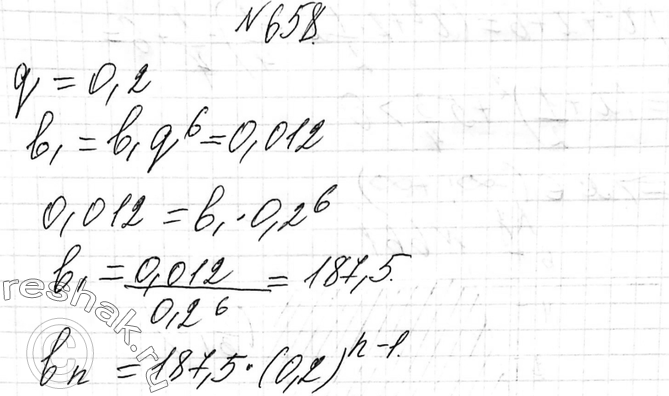 №658.
q = 0,2
b₁ = b₁q⁶ = 0,012
0,012 = b₁·0,2⁶
b₁ = 0,012 / 0,2⁶ = 187,5.
bn = 187,5·(0,2)ⁿ⁻¹.
reshak.ru